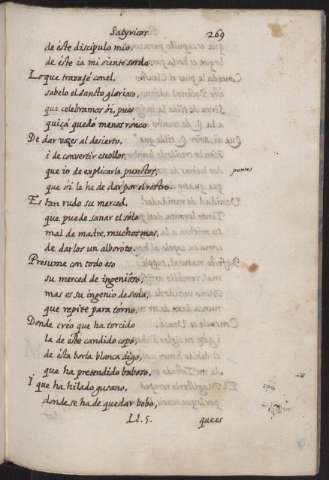 Satyricos 269
de éste discipulo mio
de éste ia mi siente sordo.
Lo que trauajé con el
sabelo el sancto glorioso,
que celebramos òi, pues
quiçà quedó menos rónco
De dar voces al desierto,
i de convertir escollos,
que io de explicarla punctos, puntos
que si la he de dar por el rostro.
Es tan rudo su merced,
que puede sanar el sólo
mal de madre, mucho mas,
de darlos un alboroto.
Presume con todo eso
su merced de ingenióso,
mas es su ingenio de seda,
que repite para torno.
Donde creó que ha torcido
la de este candido copo,
de ésta borla blanca digo,
que ha pretendido bubero.
Y que ha hilado gusano,
donde se ha de quedar bobo,
Ll. 5. que es